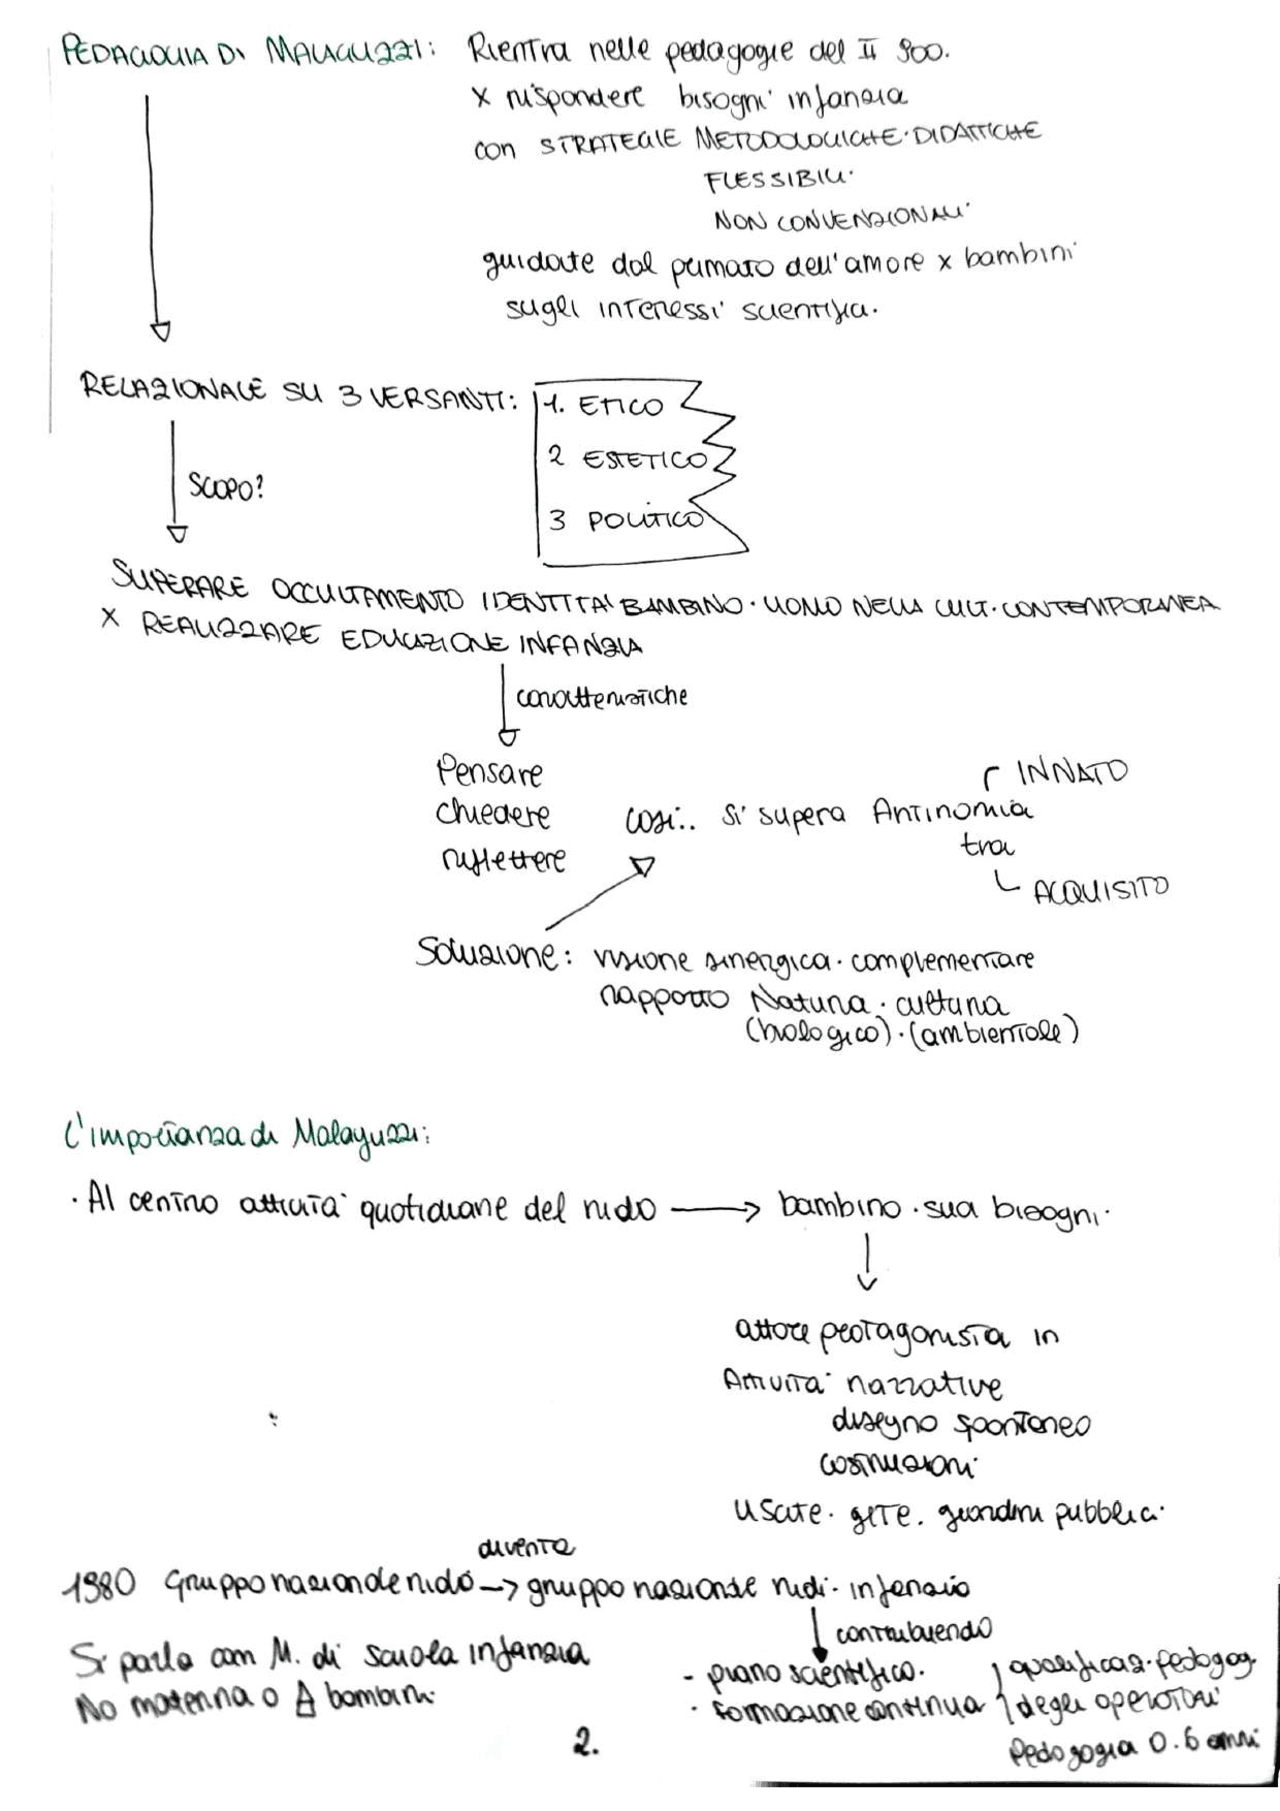 PEDAGOGIA DI MALAGUZZI: Rientra nelle pedagogie del II 900.
x rispondere bisogni infanzia
con STRATEGIE METODOLOGICHE·DIDATTICHE
FLESSIBILI·
NON CONVENZIONALI
guidate dal primato dell'amore x bambini
sugli interessi scientifici.
RELAZIONALE SU 3 VERSANTI:
1. ETICO
2 ESTETICO
3 POLITICO
SCOPO?
SUPERARE OCCULTAMENTO IDENTITA' BAMBINO·UOMO NELLA CULT·CONTEMPORANEA
X REALIZZARE EDUCAZIONE INFANZIA
caratteristiche
Pensare
chiedere
riflettere
così.. si supera Antinomia
tra
INNATO
ACQUISITO
Soluzione: visione sinergica·complementare
rapporto Natura·cultura
(biologico)·(ambientale)
L'importanza di Malaguzzi:
·Al centro attività quotidiane del nido → bambino·suoi bisogni·
attore protagonista in
Attività narrative
disegno spontaneo
costruzioni
uscite·gite. giardini pubblici·
diventa
1980 Gruppo nazionale nido → gruppo nazionale nidi·infanzia
contribuendo
Si parla con M. di scuola infanzia
No materna o Δ bambini
- piano scientifico.
· formazione continua
qualificaz·pedagog.
degli operatori
Pedagogia 0.6 anni
2.